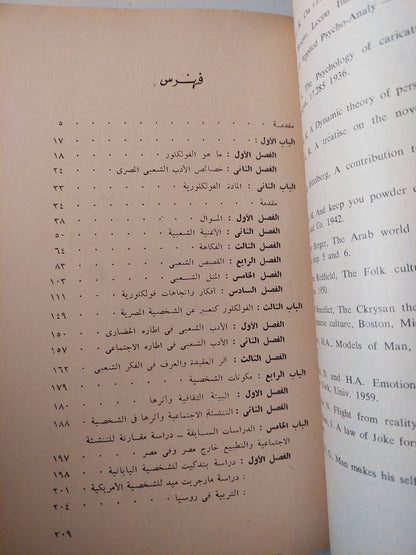 فهرس
مقدمة ٥
الباب الأول : ١٧
الفصل الأول : ما هو الفولكلور ١٨
الفصل الثانى : خصائص الأدب الشعبى المصرى ٢٤
الباب الثانى : المادة الفولكلورية ٣٣
مقدمة
الفصل الأول : الموال ٣٨
الفصل الثانى : الأغنية الشعبية ٥٠
الفصل الثالث : الفكاهة ٦٤
الفصل الرابع : القصص الشعبى ٨٣
الفصل الخامس : المثل الشعبى ١٠٣
الفصل السادس : أفكار واتجاهات فولكلورية ١١١
الباب الثالث : الفولكلور كتعبير عن الشخصية المصرية ١٤٩
الفصل الأول : الأدب الشعبى فى اطاره الحضارى ١٥٠
الفصل الثانى : الأدب الشعبى فى اطاره الاجتماعى ١٥٧
الفصل الثالث : أثر العقيدة والعرف فى الفكر الشعبى ١٦٢
الباب الرابع : مكونات الشخصية ١٧٩
الفصل الأول : البيئة الثقافية وأثرها ١٨٠
الفصل الثانى : التنشئة الاجتماعية وأثرها فى الشخصية ١٨٨
الباب الخامس : الدراسات السابقة – دراسة مقارنة للتنشئة
الاجتماعية والتطبيع خارج مصر وفى مصر ١٩٧
الفصل الأول : دراسة بندكيت للشخصية اليابانية ١٩٨
: دراسة مارجريت ميد للشخصية الأمريكية ٢٠١
: التربية فى روسيا ٢٠٤
٣٠٩
Lecon
Applied Psycho-Analy
The Psychology of caricat
17.285 1936.
A Dynamic theory of pers
A treatise on the nove
Eidelberg, A contribution to
And keep you powder
Co. 1942.
Berger, The Arab world
5 and 6.
Redfield, The Folk cultu
1950.
Benedict, The Ckrysan the
culture, Boston, Mi
H.A., Models of Man,
D. and H.A. Emotion
Univ. 1959.
Flight from reality
A law of Joke for
G., Man makes his self